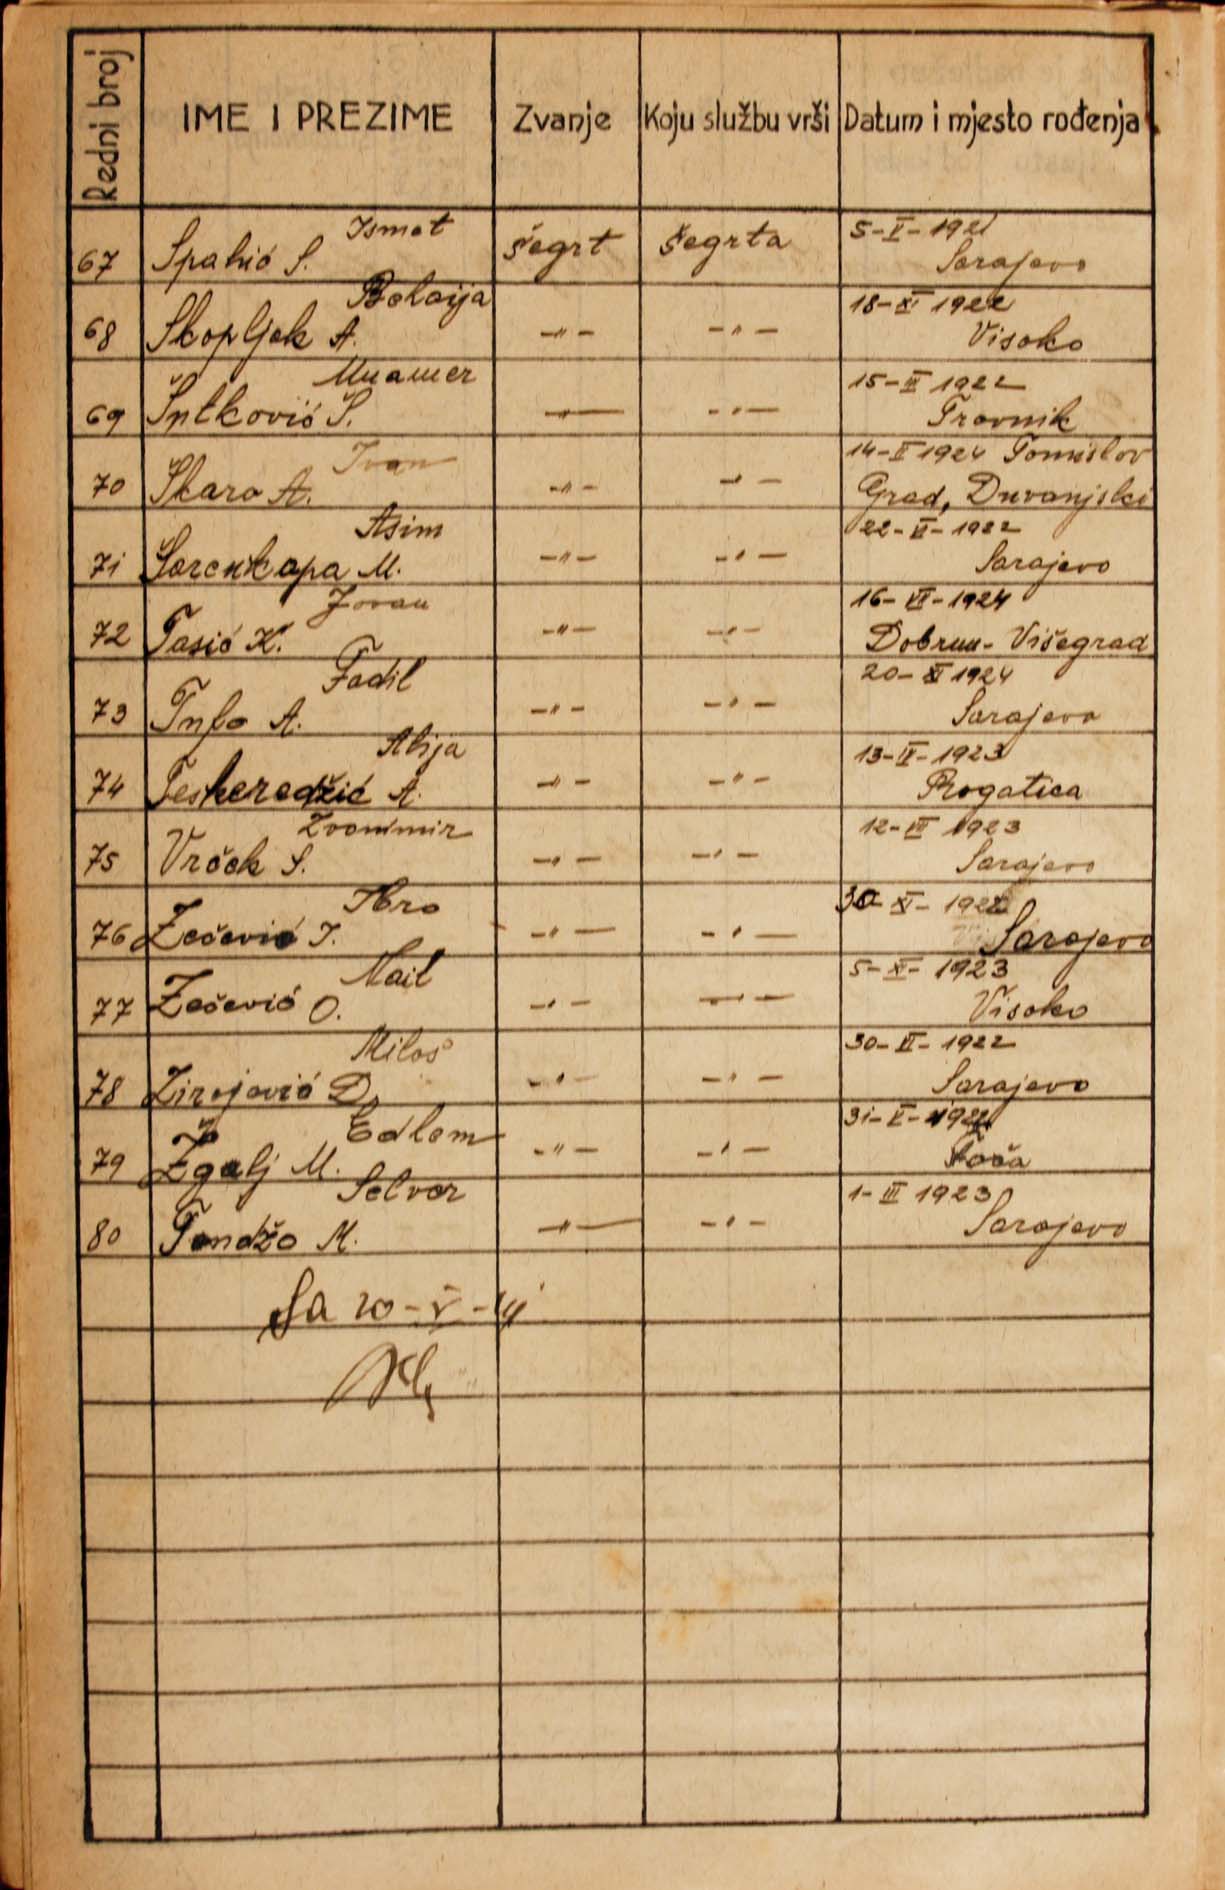 Redni broj IME I PREZIME Zvanje Koju službu vrši Datum i mjesto rođenja
Ismet 5-V-1921
67 Spahić S. šegrt šegrta Sarajevo
18-XI 1922
68 Skopljak A. -"- -"- Visoko
Muamer 15-III 1922
69 Š. -"- -"- Travnik
Ivan 14-II 1924 Tomislav
70 Škaro A. -"- -"- Grad, Duvanjski
Asim 22-VI-1922
71 Šarenkapa M. -"- -"- Sarajevo
Jovan 16-VII-1924
72 Tasić K. -"- -"- Dobrun-Višegrad
Fadil 20-XI 1924
73 Tufo A. -"- -"- Sarajevo
Alija 13-IV-1923
74 Teskeredžić A. -"- -"- Rogatica
Zvonimir 12-VIII 1923
75 Vrček S. -"- -"- Sarajevo
Ibro 30-XI-1922
76 Zečević I. -"- -"- Sarajevo
Nail 5-XI-1923
77 Zečević O. -"- -"- Visoko
Miloš 30-VI-1922
78 Zirojević D. -"- -"- Sarajevo
Edhem 31-V-1922
79 Žgalj M. -"- -"- Foča
Selver 1-III 1923
80 Tandžo M. -"- -"- Sarajevo
Sa 20-V-41